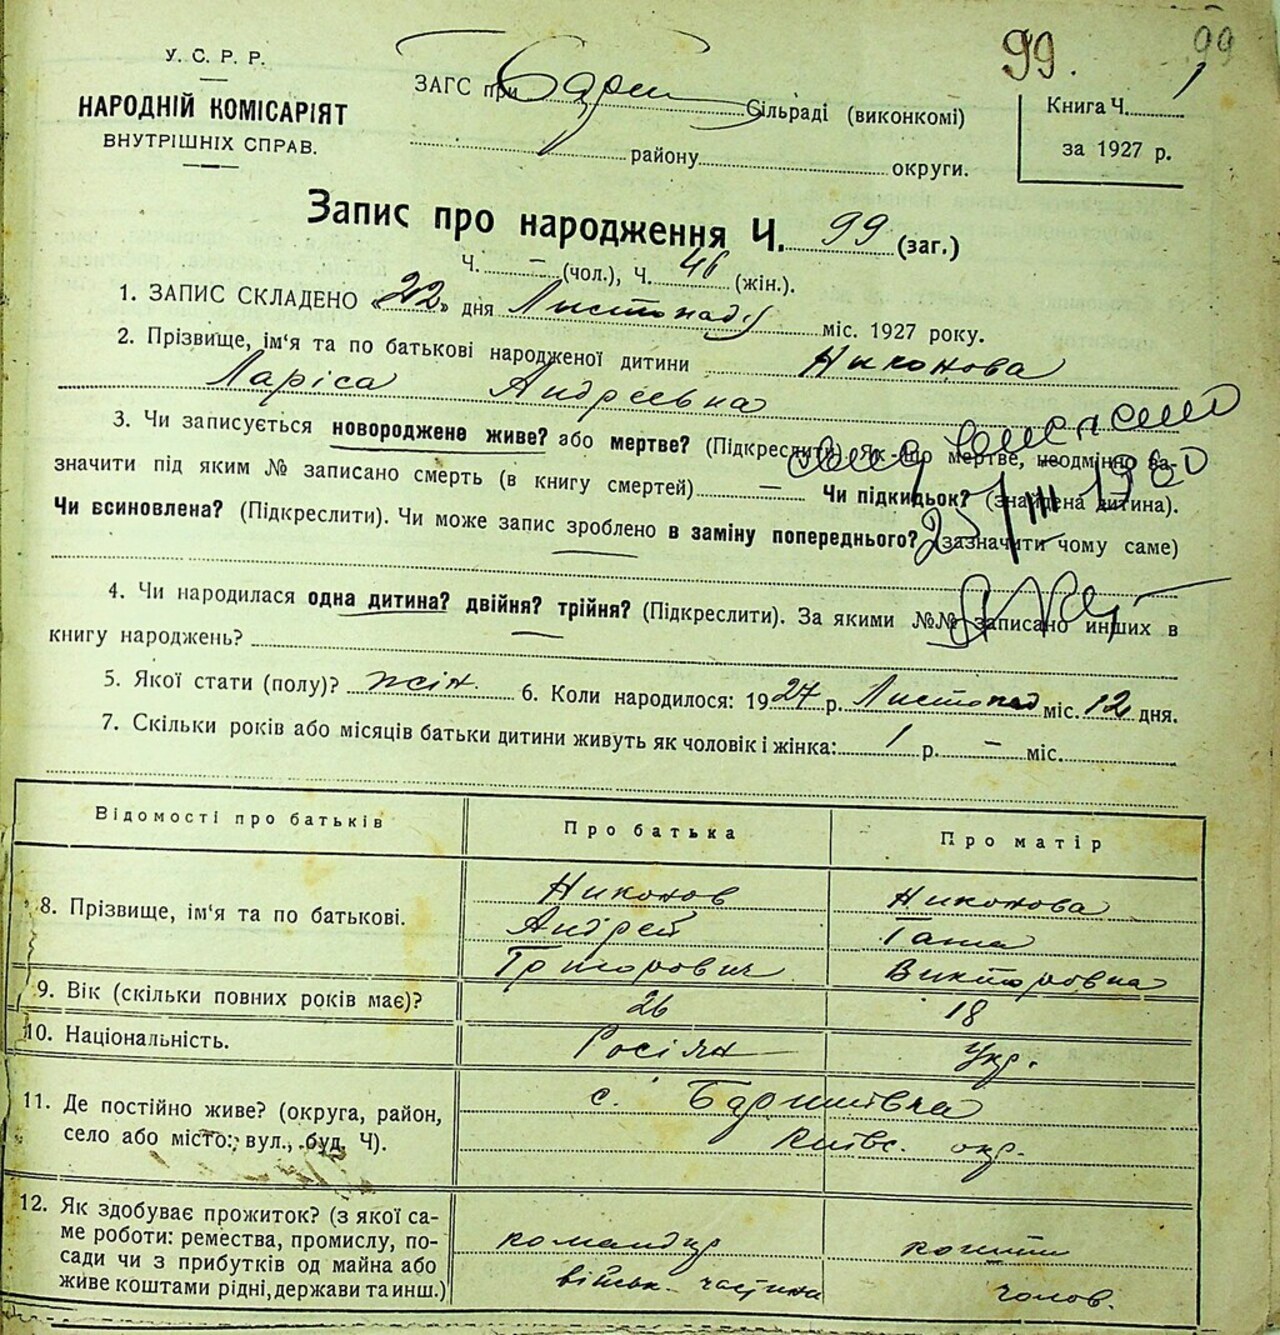 99. 99
У. С. Р. Р.
НАРОДНІЙ КОМІСАРІЯТ
ВНУТРІШНІХ СПРАВ.
ЗАГС при Сільраді (виконкомі)
району округи.
Книга Ч. 1
за 1927 р.
Запис про народження Ч. 99 (заг.)
Ч. – (чол.), Ч. 46 (жін.).
1. ЗАПИС СКЛАДЕНО «22» дня Листопаду міс. 1927 року.
2. Прізвище, ім'я та по батькові народженої дитини Никонова
Ларіса Андреевна
3. Чи записується новороджене живе? або мертве? (Підкреслити). Як-що мертве, неодмінно за-
значити під яким № записано смерть (в книгу смертей) — Чи підкидьок? (знайдена дитина).
Чи всиновлена? (Підкреслити). Чи може запис зроблено в заміну попереднього? (зазначити чому саме)
25/III 1980
4. Чи народилася одна дитина? двійня? трійня? (Підкреслити). За якими №№ записано инших в
книгу народжень?
5. Якої стати (полу)? жін. 6. Коли народилося: 1927 р. Листопад міс. 12 дня.
7. Скільки років або місяців батьки дитини живуть як чоловік і жінка: 1 р. – міс.
Відомості про батьків Про батька Про матір
8. Прізвище, ім'я та по батькові.
Никонов
Андрей
Григорович
Никонова
Таша
Викторовна
9. Вік (скільки повних років має)? 26 18
10. Національність. Росіян Укр.
11. Де постійно живе? (округа, район,
село або місто:, вул., буд. Ч).
с. Баришівка
Київс. окр.
12. Як здобуває прожиток? (з якої са-
ме роботи: ремества, промислу, по-
сади чи з прибутків од майна або
живе коштами рідні, держави та инш.)
командир
військ. частини
кошти
чолов.